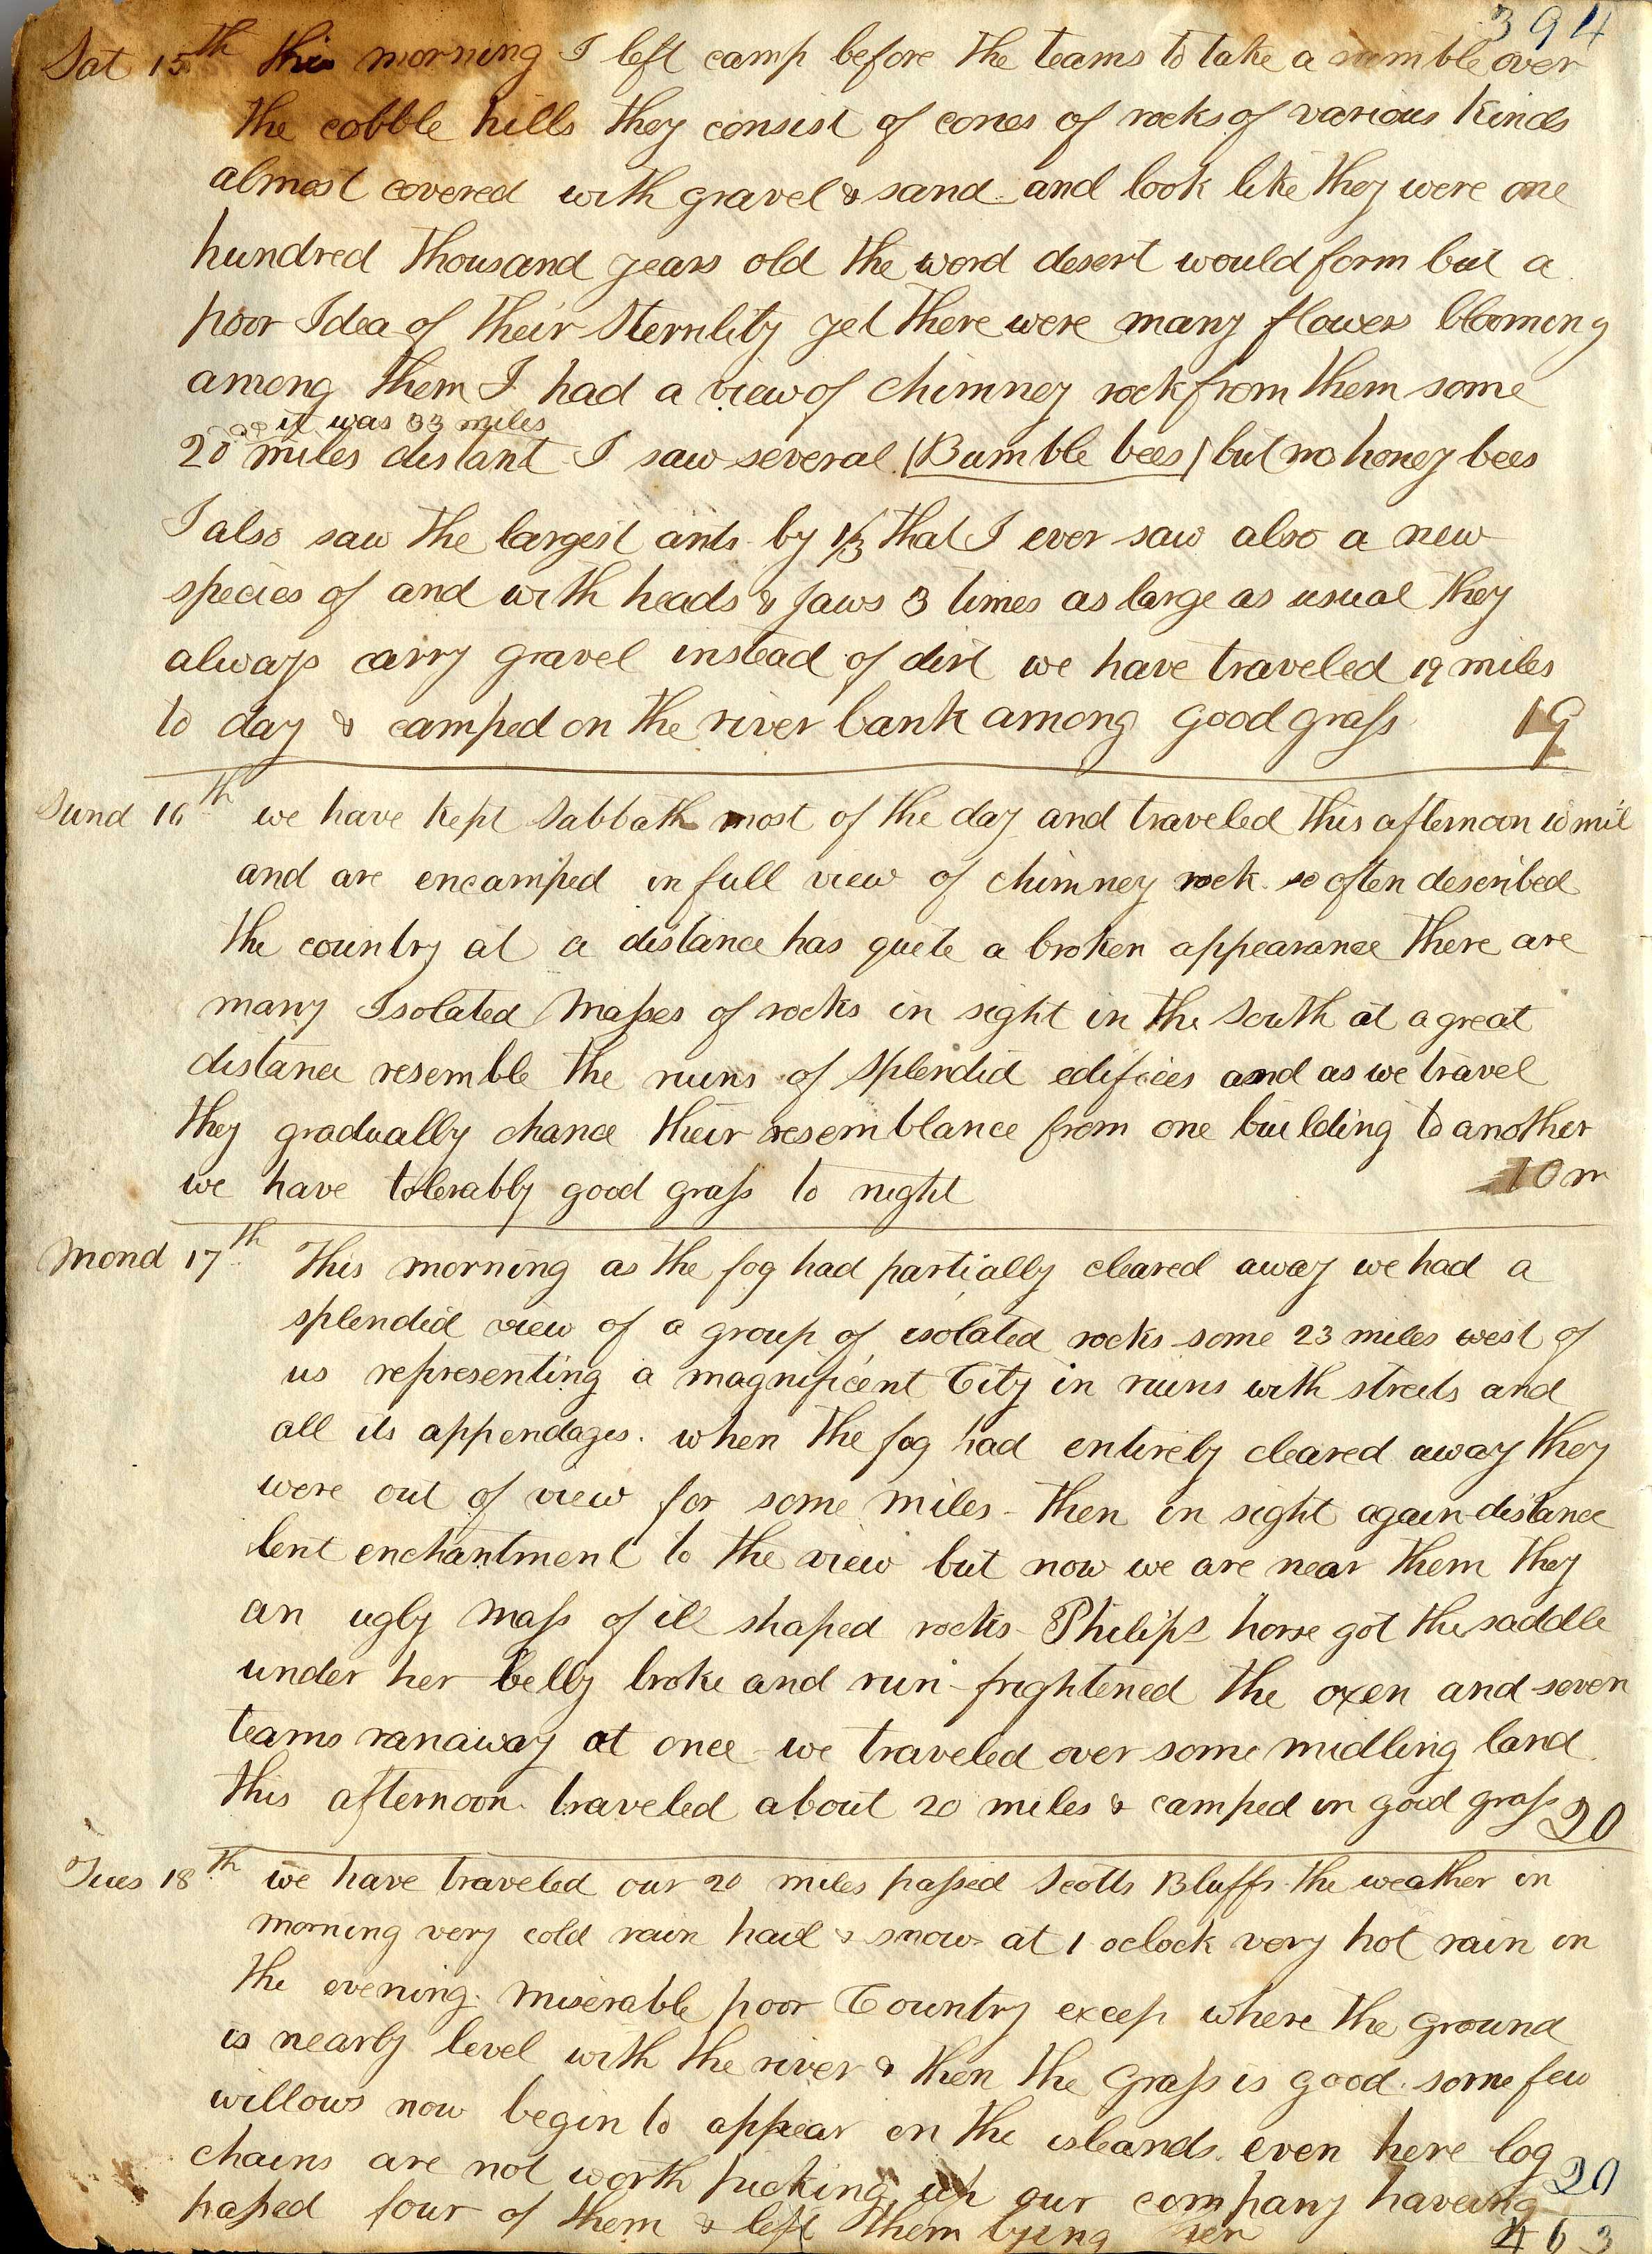 394
Sat 15th this morning I left camp before the teams to take a ramble over
the cobble hills they consist of cones of rocks of various kinds
almost covered with gravel & sand and look like they were one
hundred thousand years old the word desert would form but a
poor Idea of their Sternlity yet there were many flowers blooming
among them I had a view of chimney rock from them some
it was 33 miles
20 miles distant I saw several (Bumble bees) but no honey bees
I also saw the largest ants by 1/3 that I ever saw also a new
species of and with heads & Jaws 3 times as large as usual they
always carry gravel instead of dirt we have traveled 19 miles
to day & camped on the river bank among good grass 19
Sund 16th we have kept Sabbath most of the day and traveled this afternoon 10 mil
and are encamped in full view of chimney rock so often described
the country at a distance has quite a broken appearance there are
many Isolated Masses of rocks in sight in the South at a great
distance resemble the ruins of splendid edifices and as we travel
they gradually chance their resemblance from one building to another
we have tolerably good grass to night 10 m
Mond 17th This morning as the fog had partially cleared away we had a
splendid view of a group of isolated rocks some 23 miles west of
us representing a magnificent City in ruins with streets and
all its appendages. when the fog had entirely cleared away they
were out of view for some miles - then in sight again distance
lent enchantment to the view but now we are near them they
an ugly mass of ill shaped rocks - Philips horse got the saddle
under her belly broke and run - frightened the oxen and seven
teams ranaway at once we traveled over some midling land
this afternoon traveled about 20 miles & camped in good grass 20
Tues 18th we have traveled our 20 miles passed Scotts Bluffs the weather in
morning very cold rain hail & snow at 1 oclock very hot rain in
the evening. miserable poor Country excep where the ground
is nearly level with the river & then the Grass is good. some few
willows now begin to appear on the islands. even here log
chains are not worth picking up our company haveing 20
passed four of them & left them lying 463